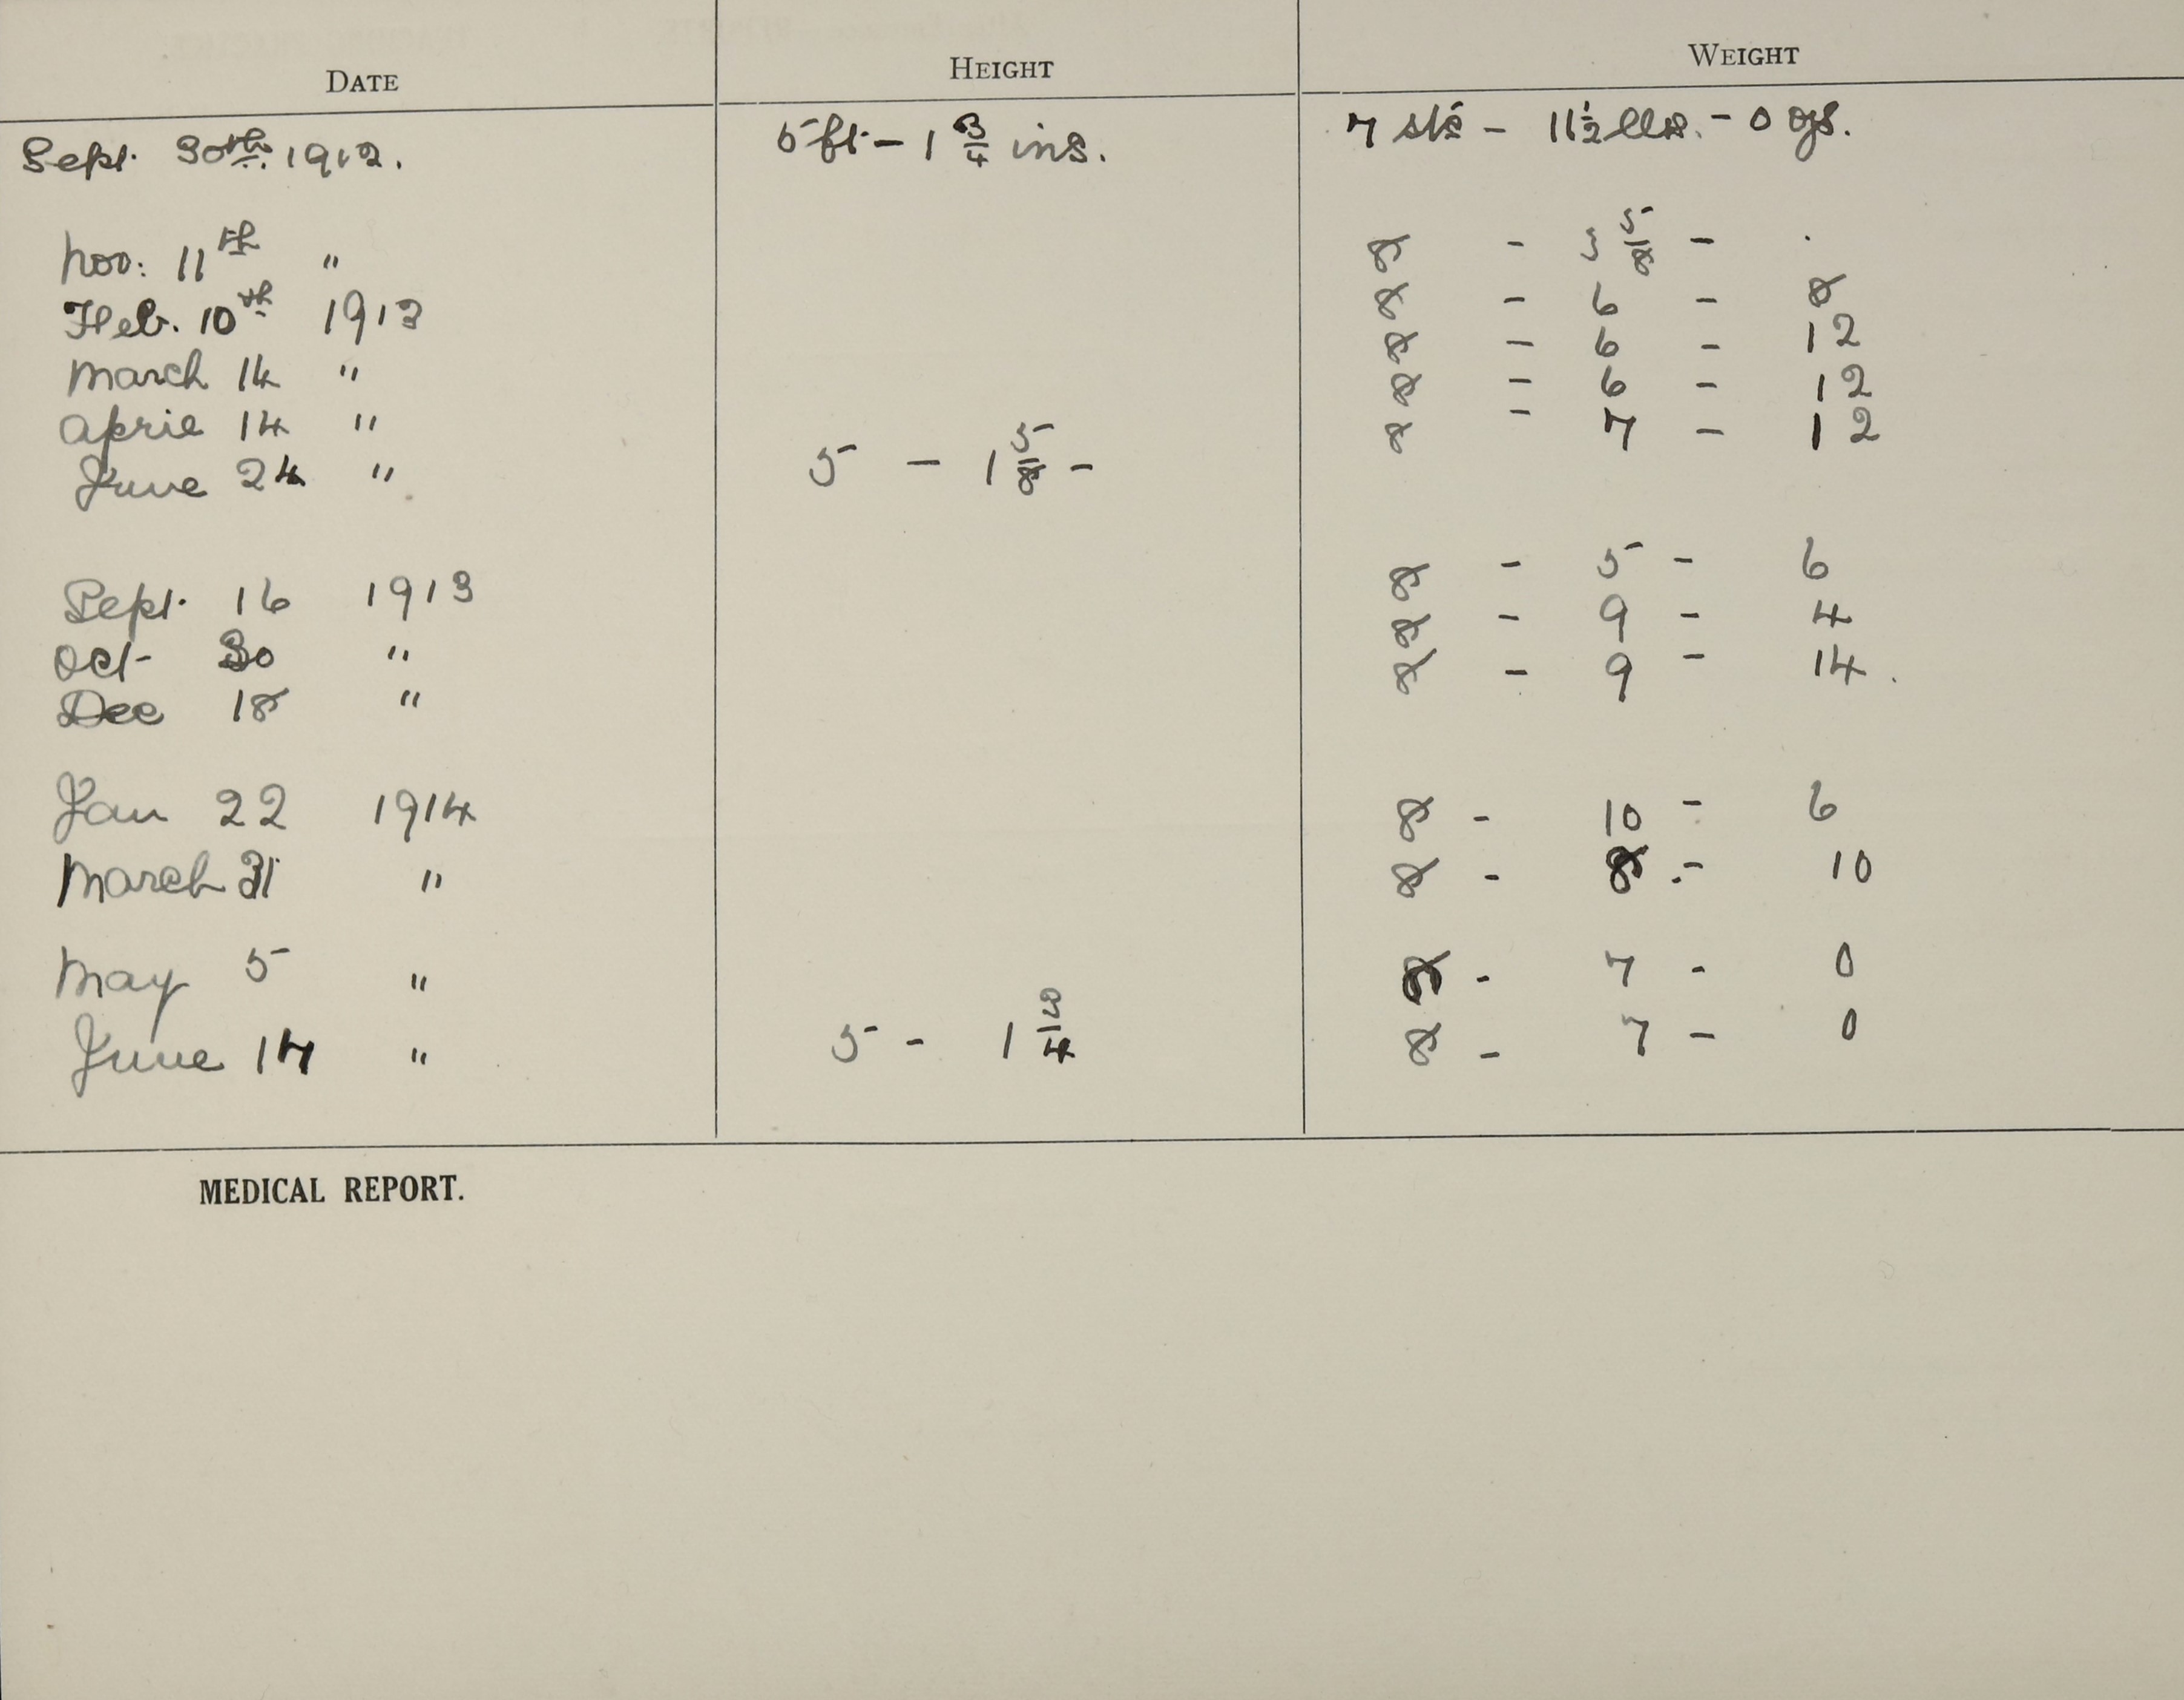 DATE HEIGHT WEIGHT
Sept. 30th. 1912. 5 ft - 1 3/4 ins. 7 sts - 11 1/2 lbs. - 0 ozs.
Nov: 11th " 8 - 3 5/8 - .
Feb. 10th 1913 8 - 6 - 8
March 14 " 8 - 6 - 12
April 14 " 8 - 6 - 12
June 24 " 5 - 1 5/8 - 8 - 7 - 12
Sept. 16 1913 8 - 5 - 6
Oct - 30 " 8 - 9 - 4
Dec 18 " 8 - 9 - 14.
Jan 22 1914 8 - 10 - 6
March 31 " 8 - 8 - 10
May 5 " 8 - 7 - 0
June 17 " 5 - 1 3/4 8 - 7 - 0
MEDICAL REPORT.